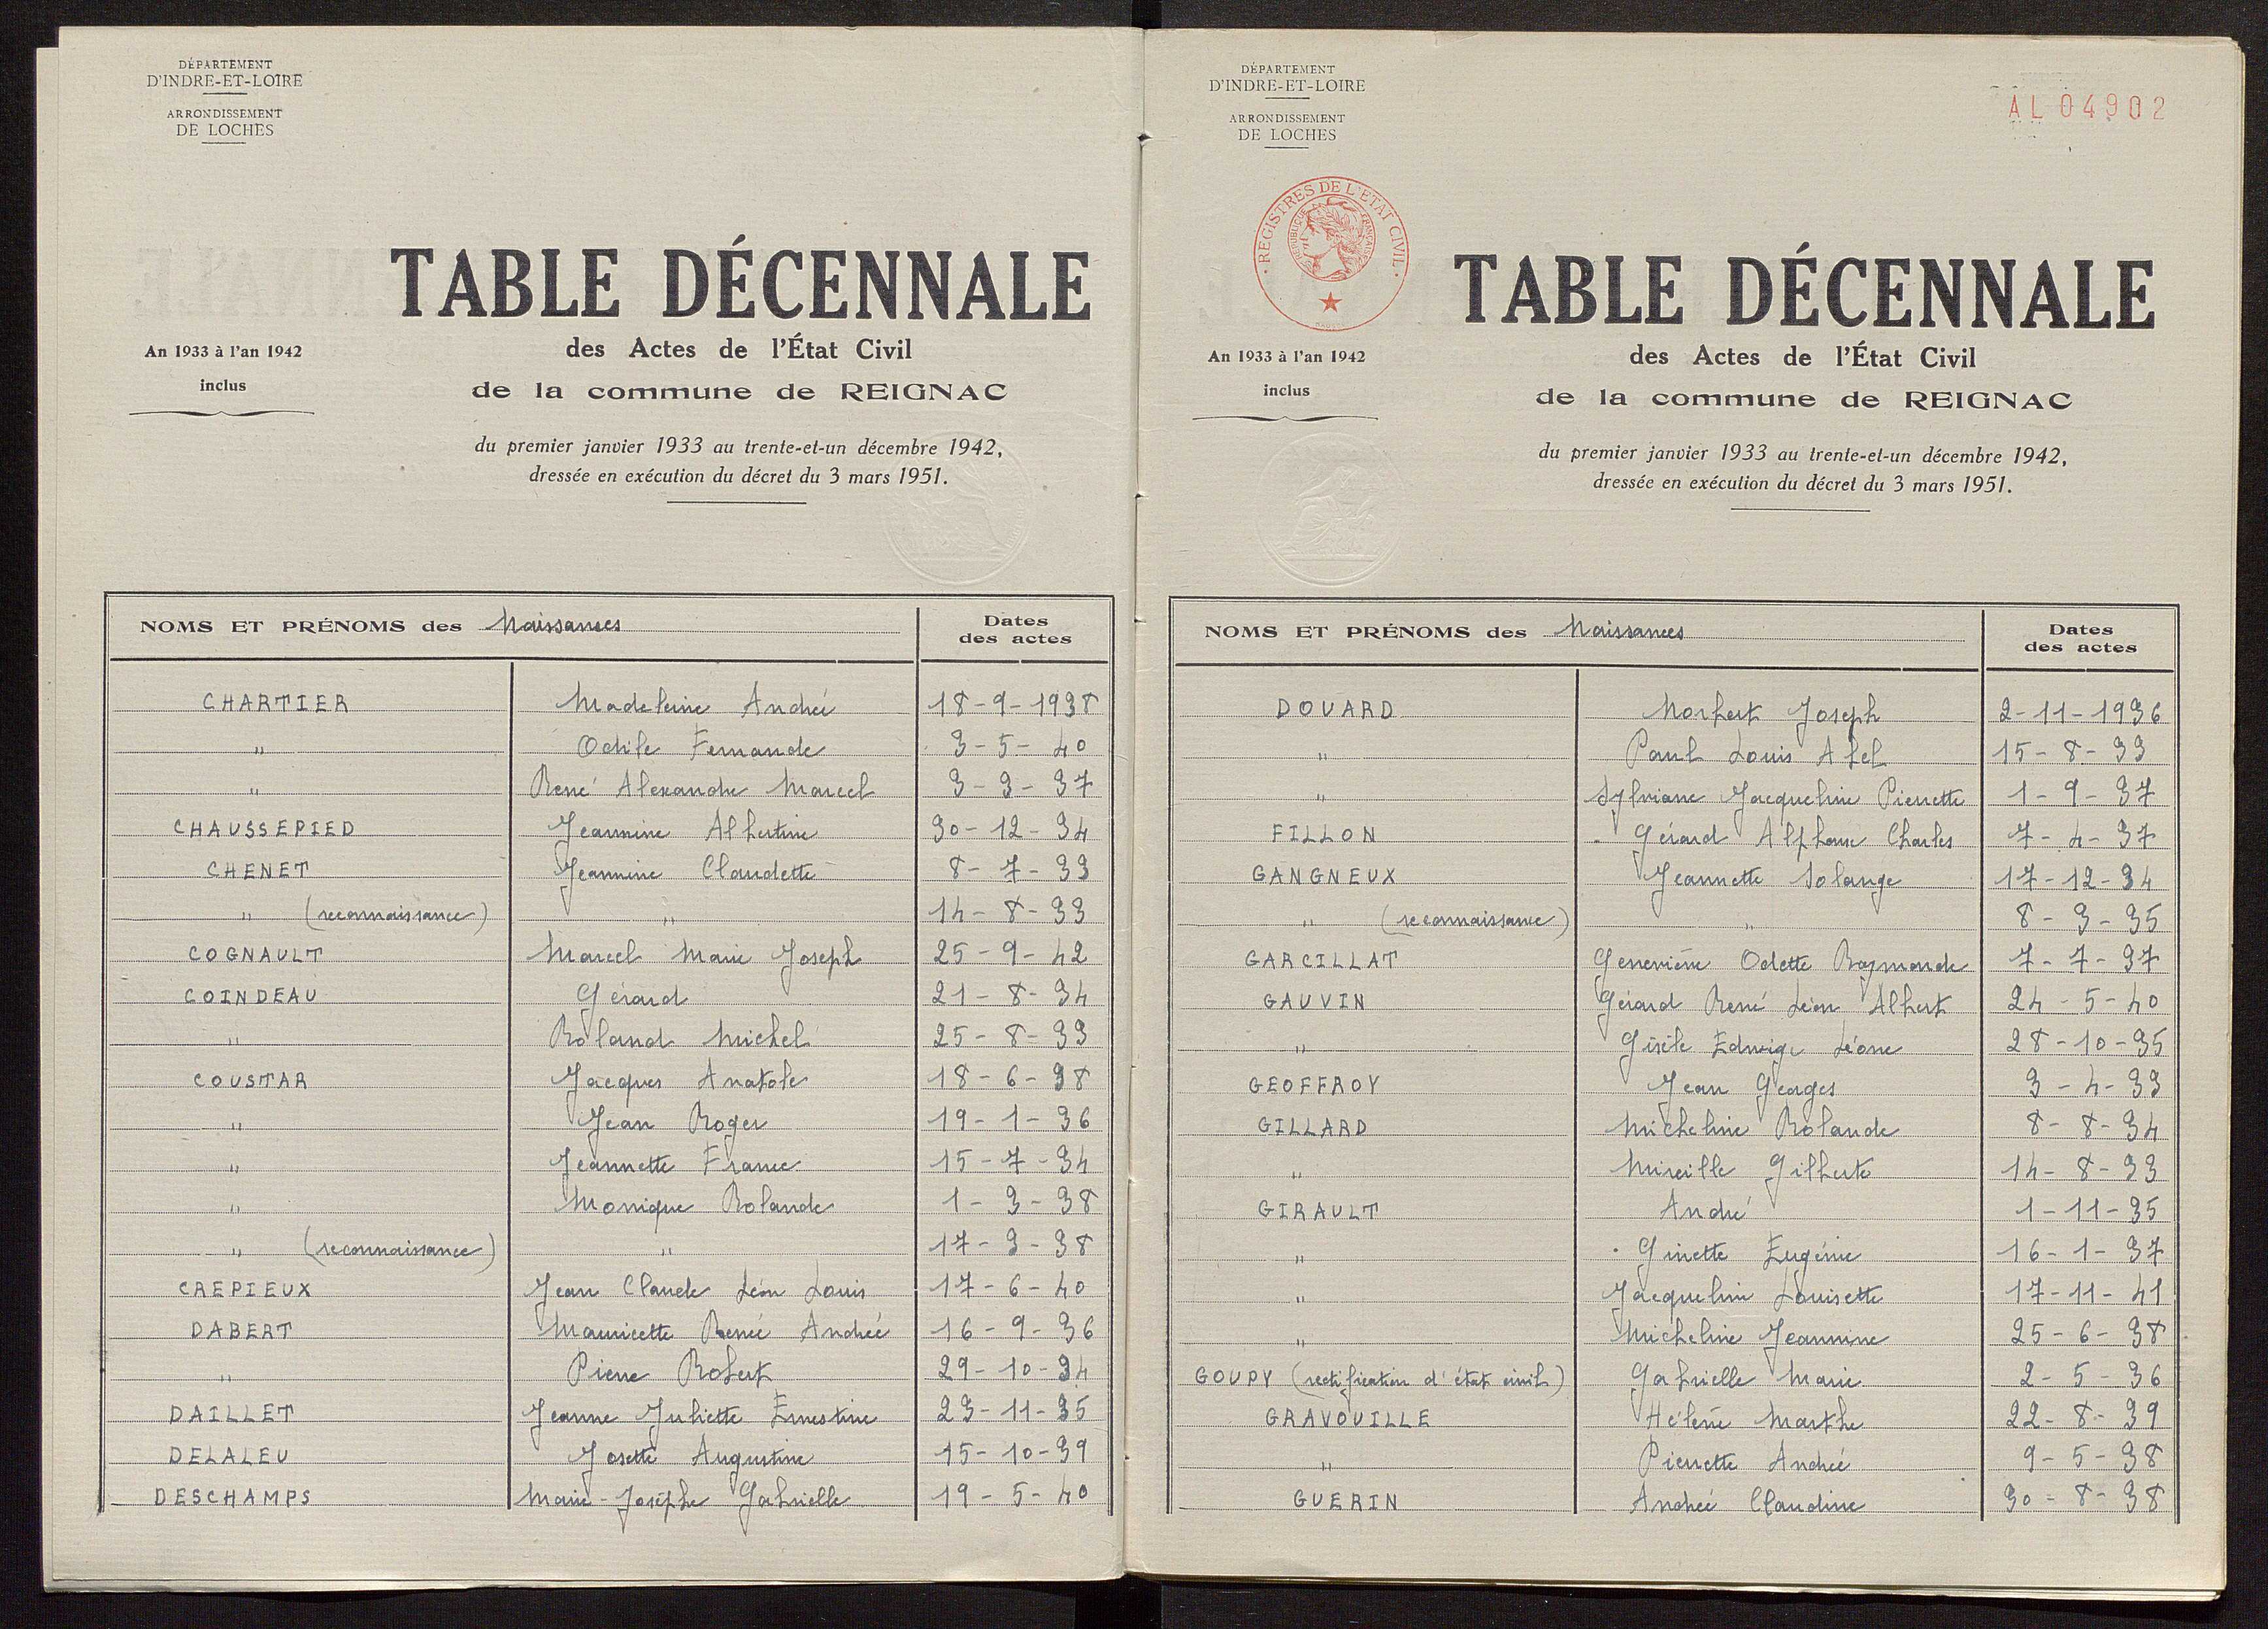 DÉPARTEMENT
D'INDRE-ET-LOIRE
ARRONDISSEMENT
DE LOCHES
TABLE DÉCENNALE
An 1933 à l'an 1942
inclus
des Actes de l'État Civil
de la commune de REIGNAC
du premier janvier 1933 au trente-et-un décembre 1942,
dressée en exécution du décret du 3 mars 1951.
NOMS ET PRÉNOMS des Naissances Dates des actes
CHARTIER Madeleine Andrée 18-9-1938
" Odile Fernande 3-5-40
" René Alexandre Marcel 3-3-37
CHAUSSEPIED Jeannine Albertine 30-12-34
CHENET Jeannine Claudette 8-7-33
" (reconnaissance) " 14-8-33
COGNAULT Marcel Marie Joseph 25-9-42
COINDEAU Gérard 21-8-34
" Roland Michel 25-8-33
COUSTAR Jacques Anatole 18-6-38
" Jean Roger 19-1-36
" Jeannette France 15-7-34
" Monique Rolande 1-3-38
" (reconnaissance) " 17-3-38
CREPIEUX Jean Claude Léon Louis 17-6-40
DABERT Mauricette Renée Andrée 16-9-36
" Pierre Robert 29-10-34
DAILLET Jeanne Juliette Ernestine 23-11-35
DELALEU Josette Augustine 15-10-39
DESCHAMPS Marie-Josèphe Gabrielle 19-5-40
DÉPARTEMENT
D'INDRE-ET-LOIRE
ARRONDISSEMENT
DE LOCHES
AL 04902
REGISTRES DE L'ETAT CIVIL
REPUBLIQUE FRANÇAISE
TABLE DÉCENNALE
An 1933 à l'an 1942
inclus
des Actes de l'État Civil
de la commune de REIGNAC
du premier janvier 1933 au trente-et-un décembre 1942,
dressée en exécution du décret du 3 mars 1951.
NOMS ET PRÉNOMS des Naissances Dates des actes
DOUARD Norbert Joseph 2-11-1936
" Paul Louis Abel 15-8-33
" Sylviane Jacqueline Pierrette 1-9-37
FILLON Gérard Alphonse Charles 7-4-37
GANGNEUX Jeannette Solange 17-12-34
" (reconnaissance) " 8-3-35
GARCILLAT Geneviève Odette Raymonde 7-7-37
GAUVIN Gérard René Léon Albert 24-5-40
" Gisèle Edwige Léone 28-10-35
GEOFFROY Jean Georges 3-4-33
GILLARD Micheline Rolande 8-8-34
" Mireille Gilberte 14-8-33
GIRAULT André 1-11-35
" Ginette Eugénie 16-1-37
" Jacqueline Louisette 17-11-41
" Micheline Jeannine 25-6-38
GOUPY (rectification d'état civil) Gabrielle Marie 2-5-36
GRAVOUILLE Hélène Marthe 22-8-39
" Pierrette Andrée 9-5-38
GUERIN Andrée Claudine 30-8-38